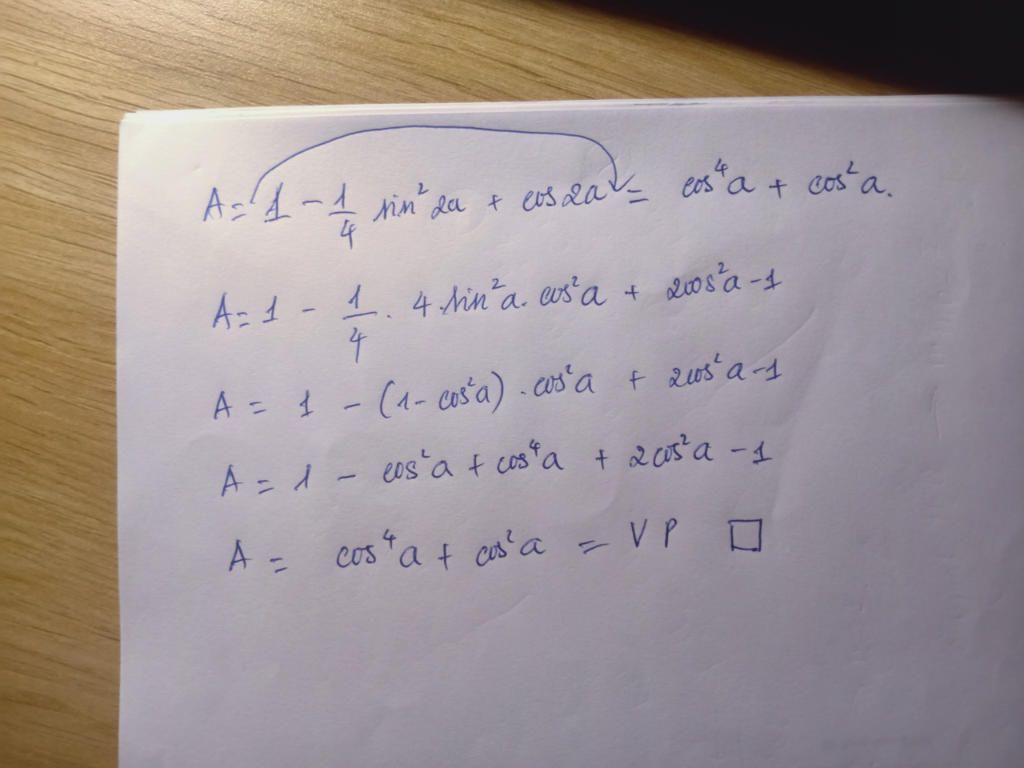 A = 1 - 1/4 sin²2a + cos2a = cos⁴a + cos²a.
A = 1 - 1/4 . 4 sin²a . cos²a + 2cos²a - 1
A = 1 - (1 - cos²a) . cos²a + 2cos²a - 1
A = 1 - cos²a + cos⁴a + 2cos²a - 1
A = cos⁴a + cos²a = VP □